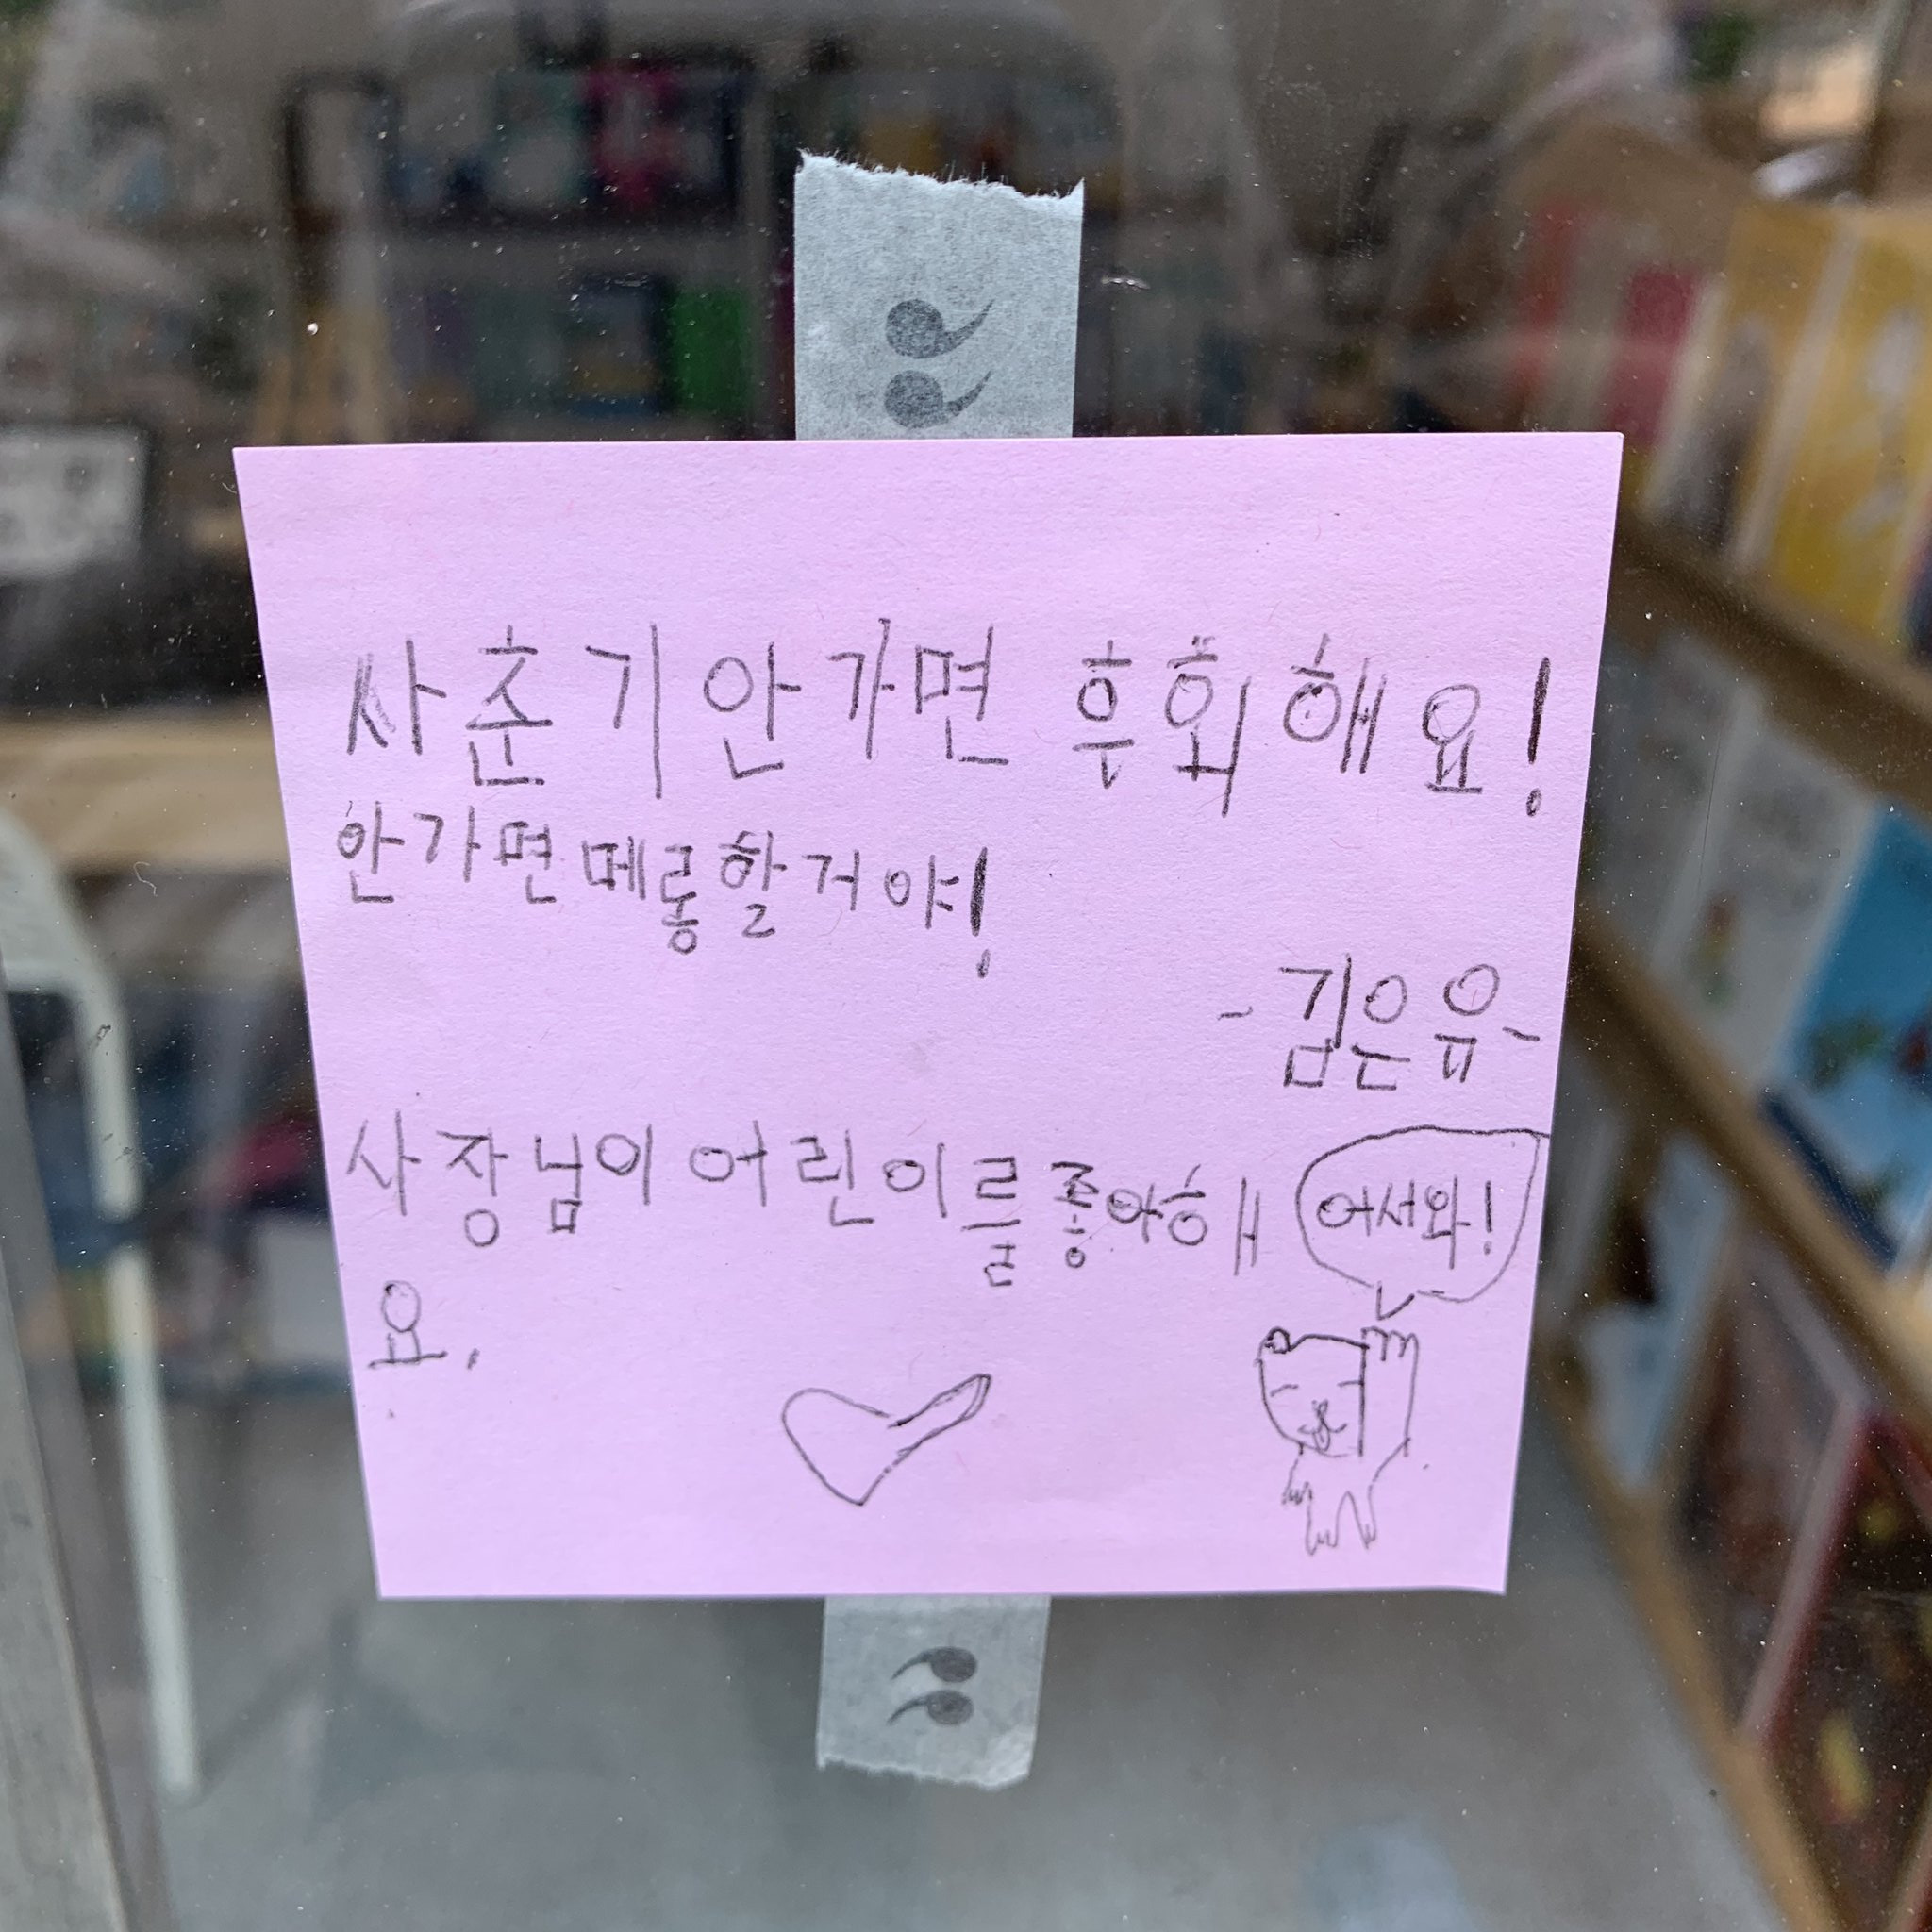 사춘기안가면 후회해요!
안가면메롱할거야!
- 김은유-
사장님이 어린이를좋아해
요.
어서와!